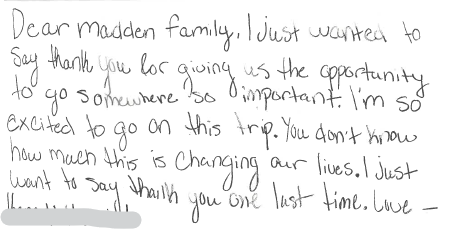 Dear madden family, I just wanted to
Say thank you for giving us the opportunity
to go somewhere so important. I'm so
excited to go on this trip. You don't know
how much this is changing our lives. I just
want to say thank you one last time. Love –